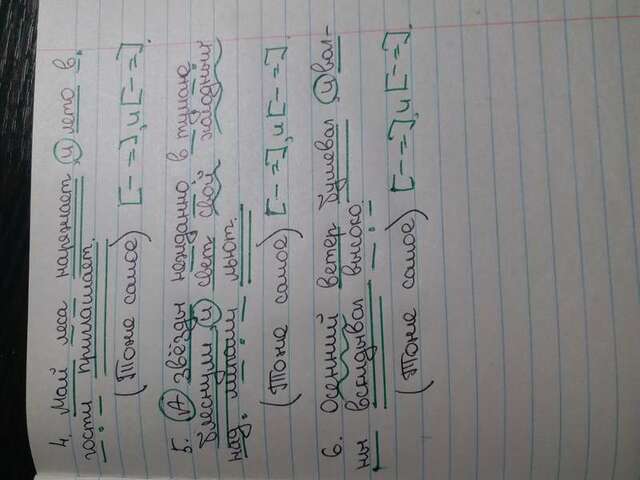 4. Май леса наряжает, и лето в
гости приглашает.
(Тоже самое) [- =], и [- =].
5. А звёзды нежданно в тумане
блеснули, и свет свой холодный
над липами льют.
(Тоже самое) [- =], и [- =].
6. Осенний ветер бушевал, и вол-
ны вскидывал высоко.
(Тоже самое) [- =], и [- =].